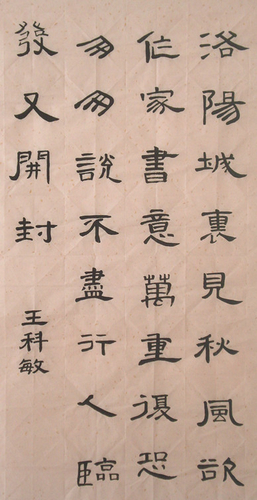 洛陽城裏見秋風欲
作家書意萬重復恐
匆匆說不盡行人臨
發又開封
王科敏